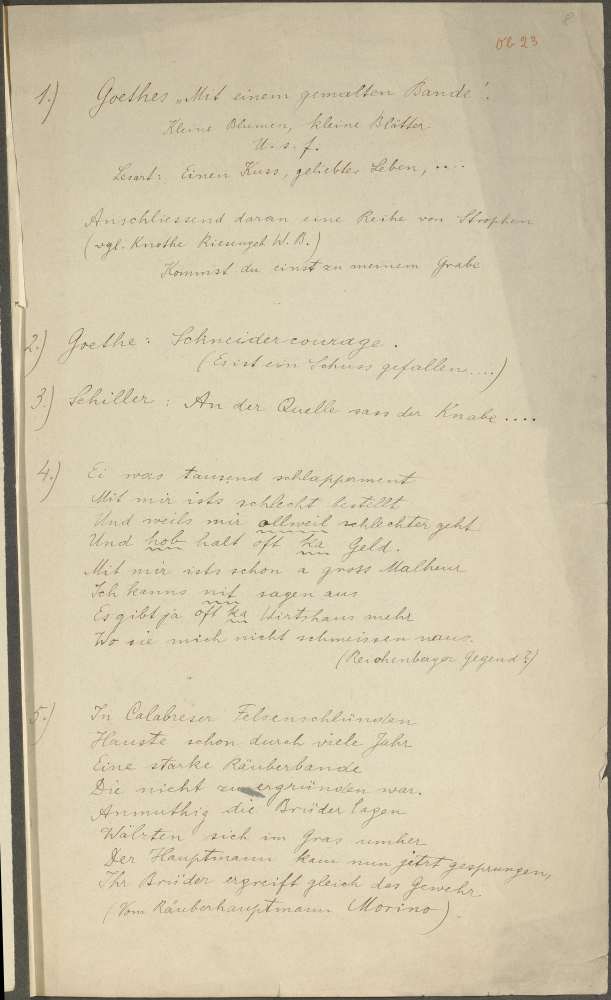 8
Ob 23
1.) Goethes „Mit einem gemalten Bande".
Kleine Blumen, kleine Blätter
U. s. f.
Lesart: Einen Kuss, geliebtes Leben, ....
Anschliessend daran eine Reihe von Strophen
(vgl. Knothe Riesengeb W. B.)
Kommst du einst zu meinem Grabe
2.) Goethe: Schneidercourage.
(Es ist ein Schuss gefallen....)
3.) Schiller: An der Quelle sass der Knabe....
4.) Ei was tausend schlapperment
Mit mir ists schlecht bestellt
Und weils mir allweil schlechter geht
Und hob halt oft ka Geld.
Mit mir ists schon a gross Malheur
Ich kanns nit sagen aus
Es gibt ja oft ka Wirtshaus mehr
Wo sie mich nicht schmeissen naus.
(Reichenberger Gegend?)
5.) In Calabreser Felsenschlünden
Hauste schon durch viele Jahr
Eine starke Räuberbande
Die nicht zu ergründen war.
Anmuthig die Brüder lagen
Wälzten sich im Gras umher
Der Hauptmann kam nun jetzt gesprungen,
Ihr Brüder ergreift gleich das Gewehr
(Vom Räuberhauptmann Morino).